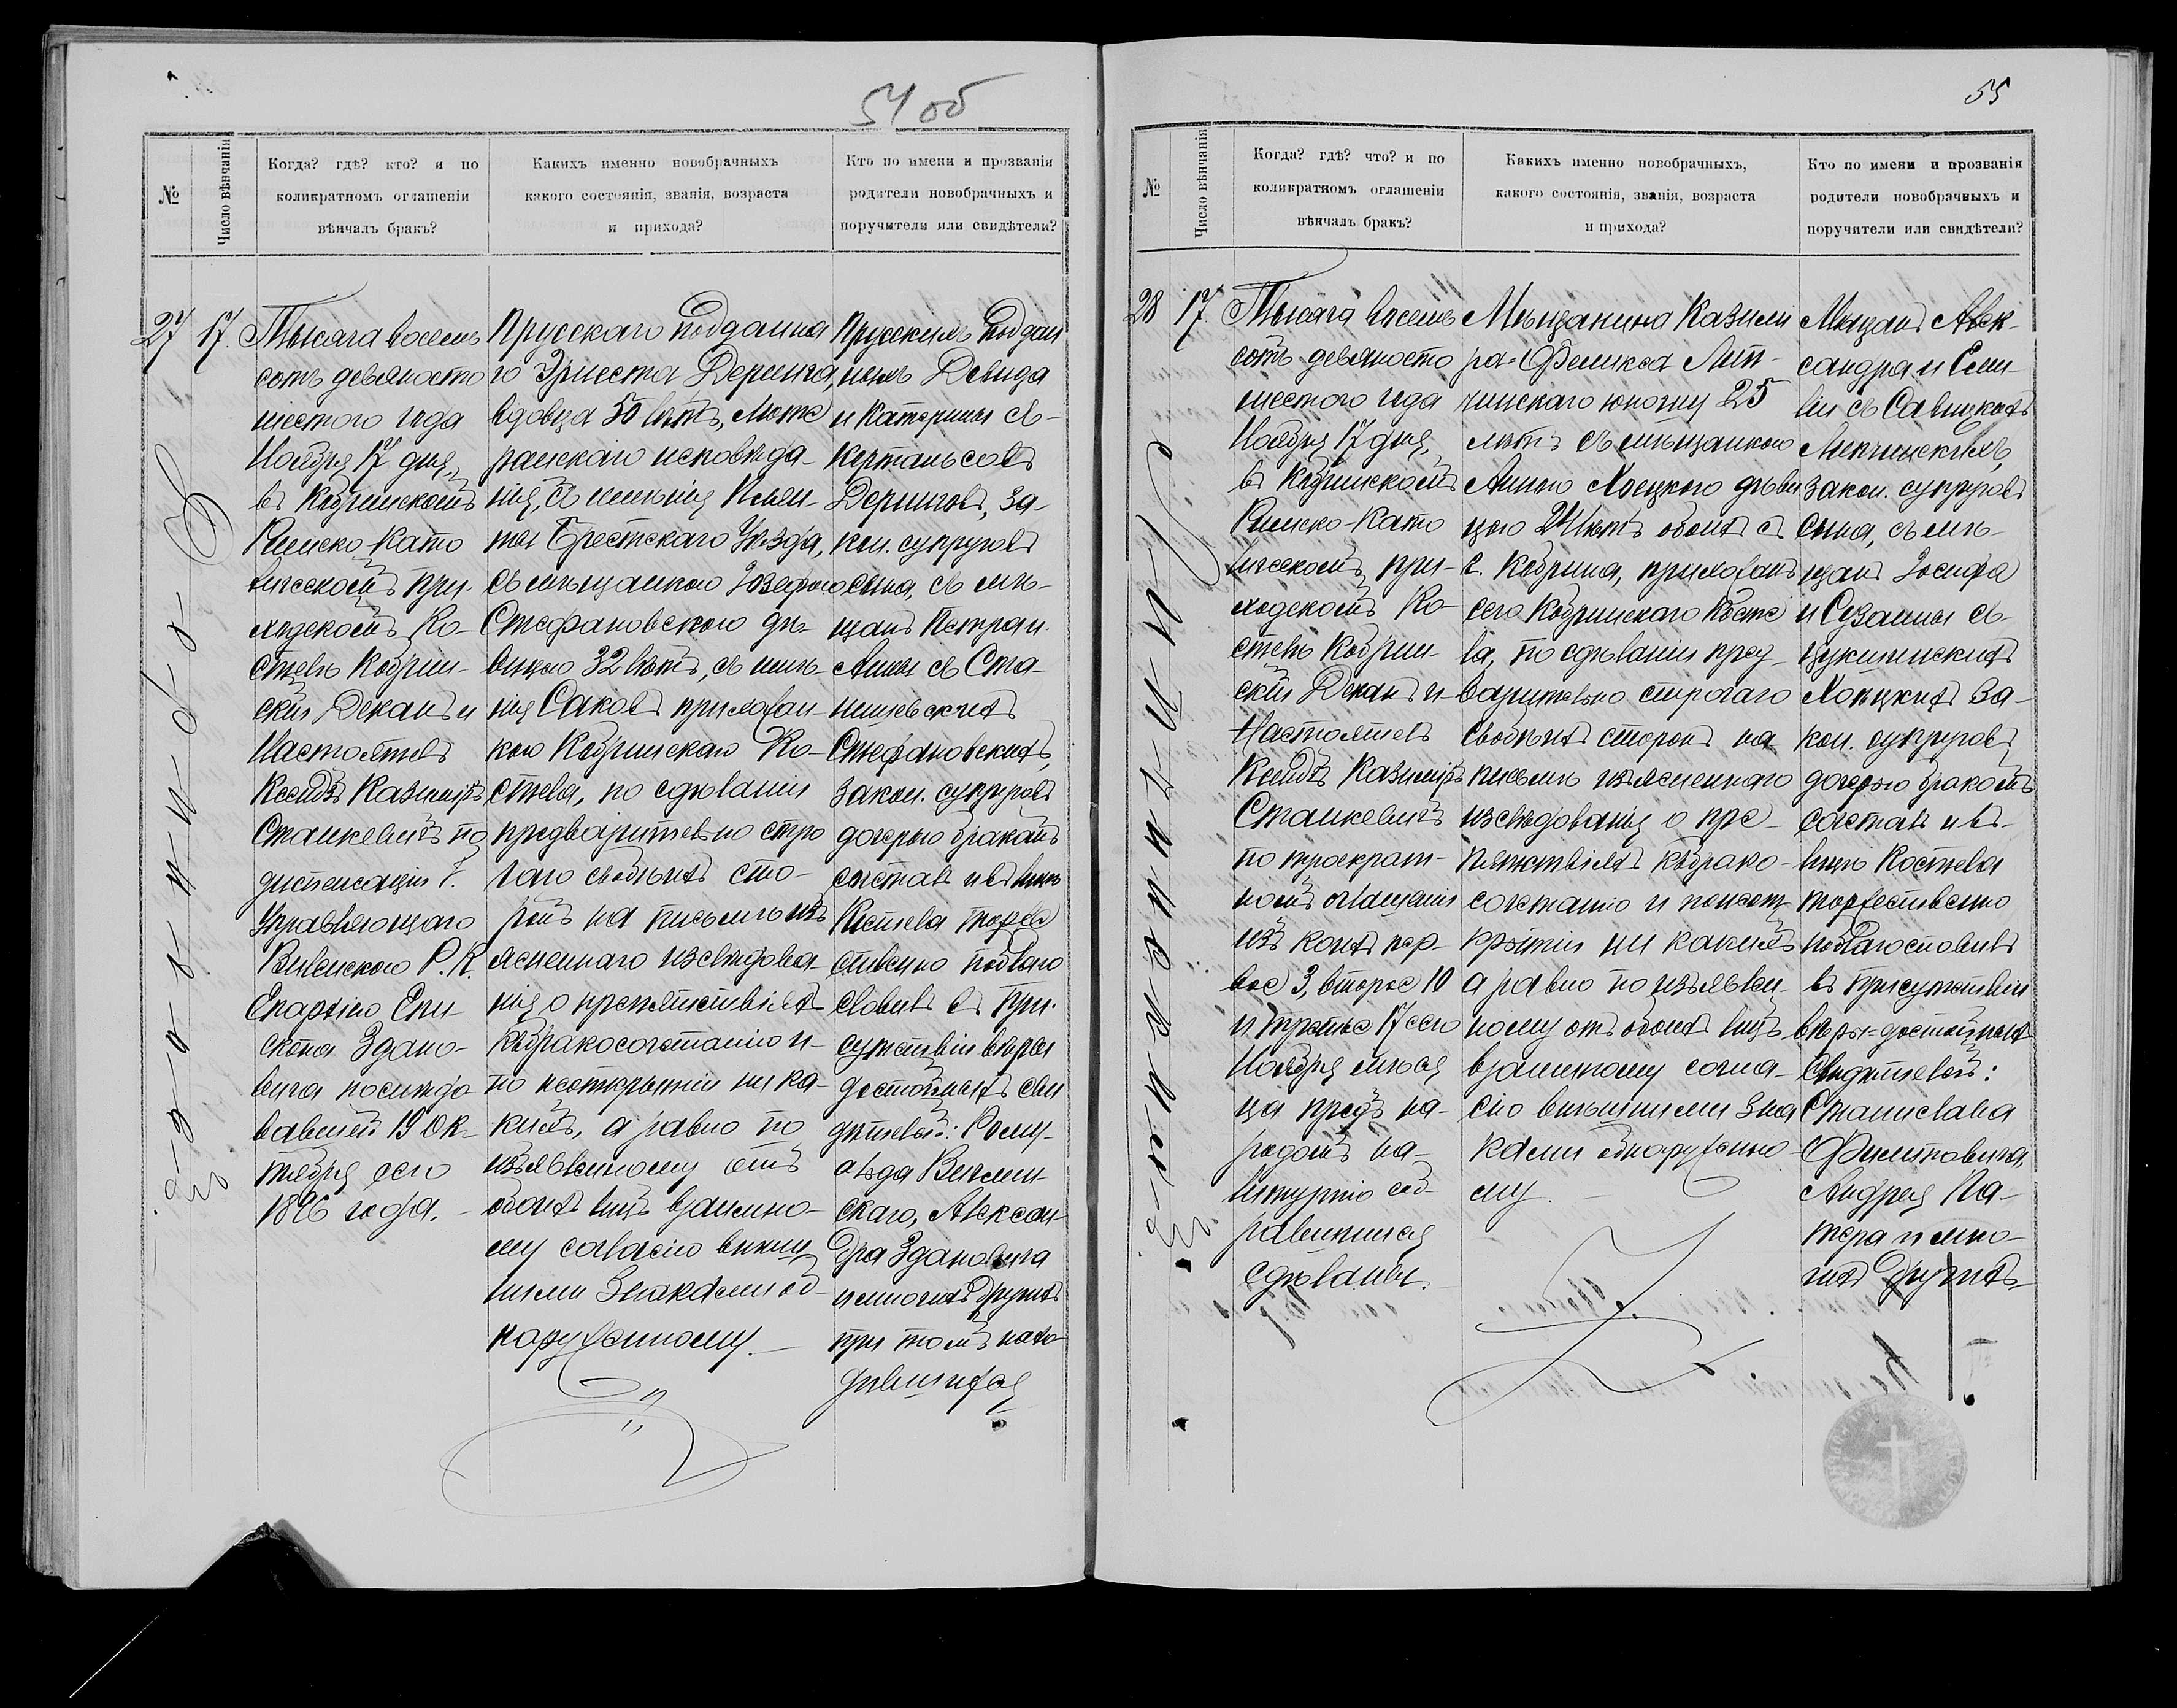 54 об
№
Число вѣнчанія
Когда? гдѣ? кто? и по
коликратномъ оглашеніи
вѣнчалъ бракъ?
Какихъ именно новобрачныхъ
какого состоянія, званія, возраста
и прихода?
Кто по имени и прозванія
родители новобрачныхъ и
поручители или свидѣтели?
27
17.
Тысяча восемь
сотъ девяносто
шестого года
Ноября 17 дня,
въ Кобринскомъ
Римско Като
лическомъ При-
ходскомъ Ко-
стелѣ Кобрин-
скій Деканъ и
Настоятель
Ксендзъ Казиміръ
Станкевичъ по
диспенсаціи Г.
Управляющаго
Виленскою Р. К.
Епархіею Епи-
скопа Здано-
вича послѣдо
вавшей 19 Ок-
тября сего
1896 года.
Прусскаго подданна
го Эрнеста Деринга,
вдовца 50 лѣтъ, Люте
ранскаго исповѣда-
нія, съ имѣнія
Брестскаго Уѣзда,
съ мѣщанкою Іозефою
Стефановскою дѣ-
вицею 32 лѣтъ, съ имѣ-
нія Саковъ прихожан-
кою Кобринскаго Ко-
стела, по сдѣланіи
предварительно стро
гаго съ обѣихъ сто-
ронъ на письмѣ изъ
ясненнаго изслѣдова-
нія о препятствіяхъ
къ бракосочетанію и
по неоткрытіи ни ка-
кихъ, а равно по
изъявленному отъ
обоихъ лицъ взаимно-
му согласію внѣш
ними знаками об-
наруженному.
Прусскихъ поддан
ныхъ Давида
и Катерины съ
Дерингъ, за-
кон. супруговъ
сына, съ мѣ-
щанъ Петра и
Анны съ Ста-
нишевскихъ
Стефановскихъ,
закон. супруговъ
дочерью бракомъ
сочеталъ и въ лицѣ
Костела торже
ственно поблаго
словилъ въ при-
сутствіи вѣры
достойныхъ сви
дѣтелей: Рому-
альда
скаго, Алексан
дра Здановича
и многихъ другихъ
при томъ нахо
дившихся
55
№
Число вѣнчанія
Когда? гдѣ? что? и по
коликратномъ оглашеніи
вѣнчалъ бракъ?
Какихъ именно новобрачныхъ,
какого состоянія, званія, возраста
и прихода?
Кто по имени и прозванія
родители новобрачныхъ и
поручители или свидѣтели?
28
17.
Тысяча восемь
сотъ девяносто
шестого года
Ноября 17 дня,
въ Кобринскомъ
Римско-Като
лическомъ при-
ходскомъ Ко-
стелѣ Кобрин-
скій Деканъ и
Настоятель
Ксендзъ Казиміръ
Станкевичъ
по троекрат-
номъ оглашеніи
изъ коихъ пер-
вое 3, второе 10
и третье 17 сего
Ноября мѣся
ца предъ на-
родомъ на
Литургію соб-
равшимся
сдѣланы.
Мѣщанина Казими
ра-Феликса Леп-
чинскаго юношу 25
лѣтъ съ мѣщанкою
Анною Хоецкою дѣви
цею 24 лѣтъ обоихъ съ
г. Кобрина, прихожанъ
сего Кобринскаго Косте
ла, по сдѣланіи пред-
варительно строгаго
съ обѣихъ сторонъ на
письмѣ изъясненнаго
изслѣдованія о пре-
пятствіяхъ къ брако-
сочетанію и по неот-
крытіи ни какихъ
а равно по изъявлен-
ному отъ обоихъ лицъ
взаимному согла-
сію внѣшними зна
ками обнаруженно
му.
Мѣщанъ Алек-
сандра и Еми-
ліи съ Савицкихъ
Лепчинскихъ,
закон. супруговъ
сына, съ мѣ-
щанъ Іосифа
и Сузанны съ
Хоецкихъ за-
кон. супруговъ
дочерью бракомъ
сочеталъ и въ
лицѣ Костела
торжественно
поблагословилъ
въ присутствіи
вѣры-достойныхъ
свидѣтелей:
Станислава
Филиповича,
Андрея Па-
тера и мно-
гихъ другихъ